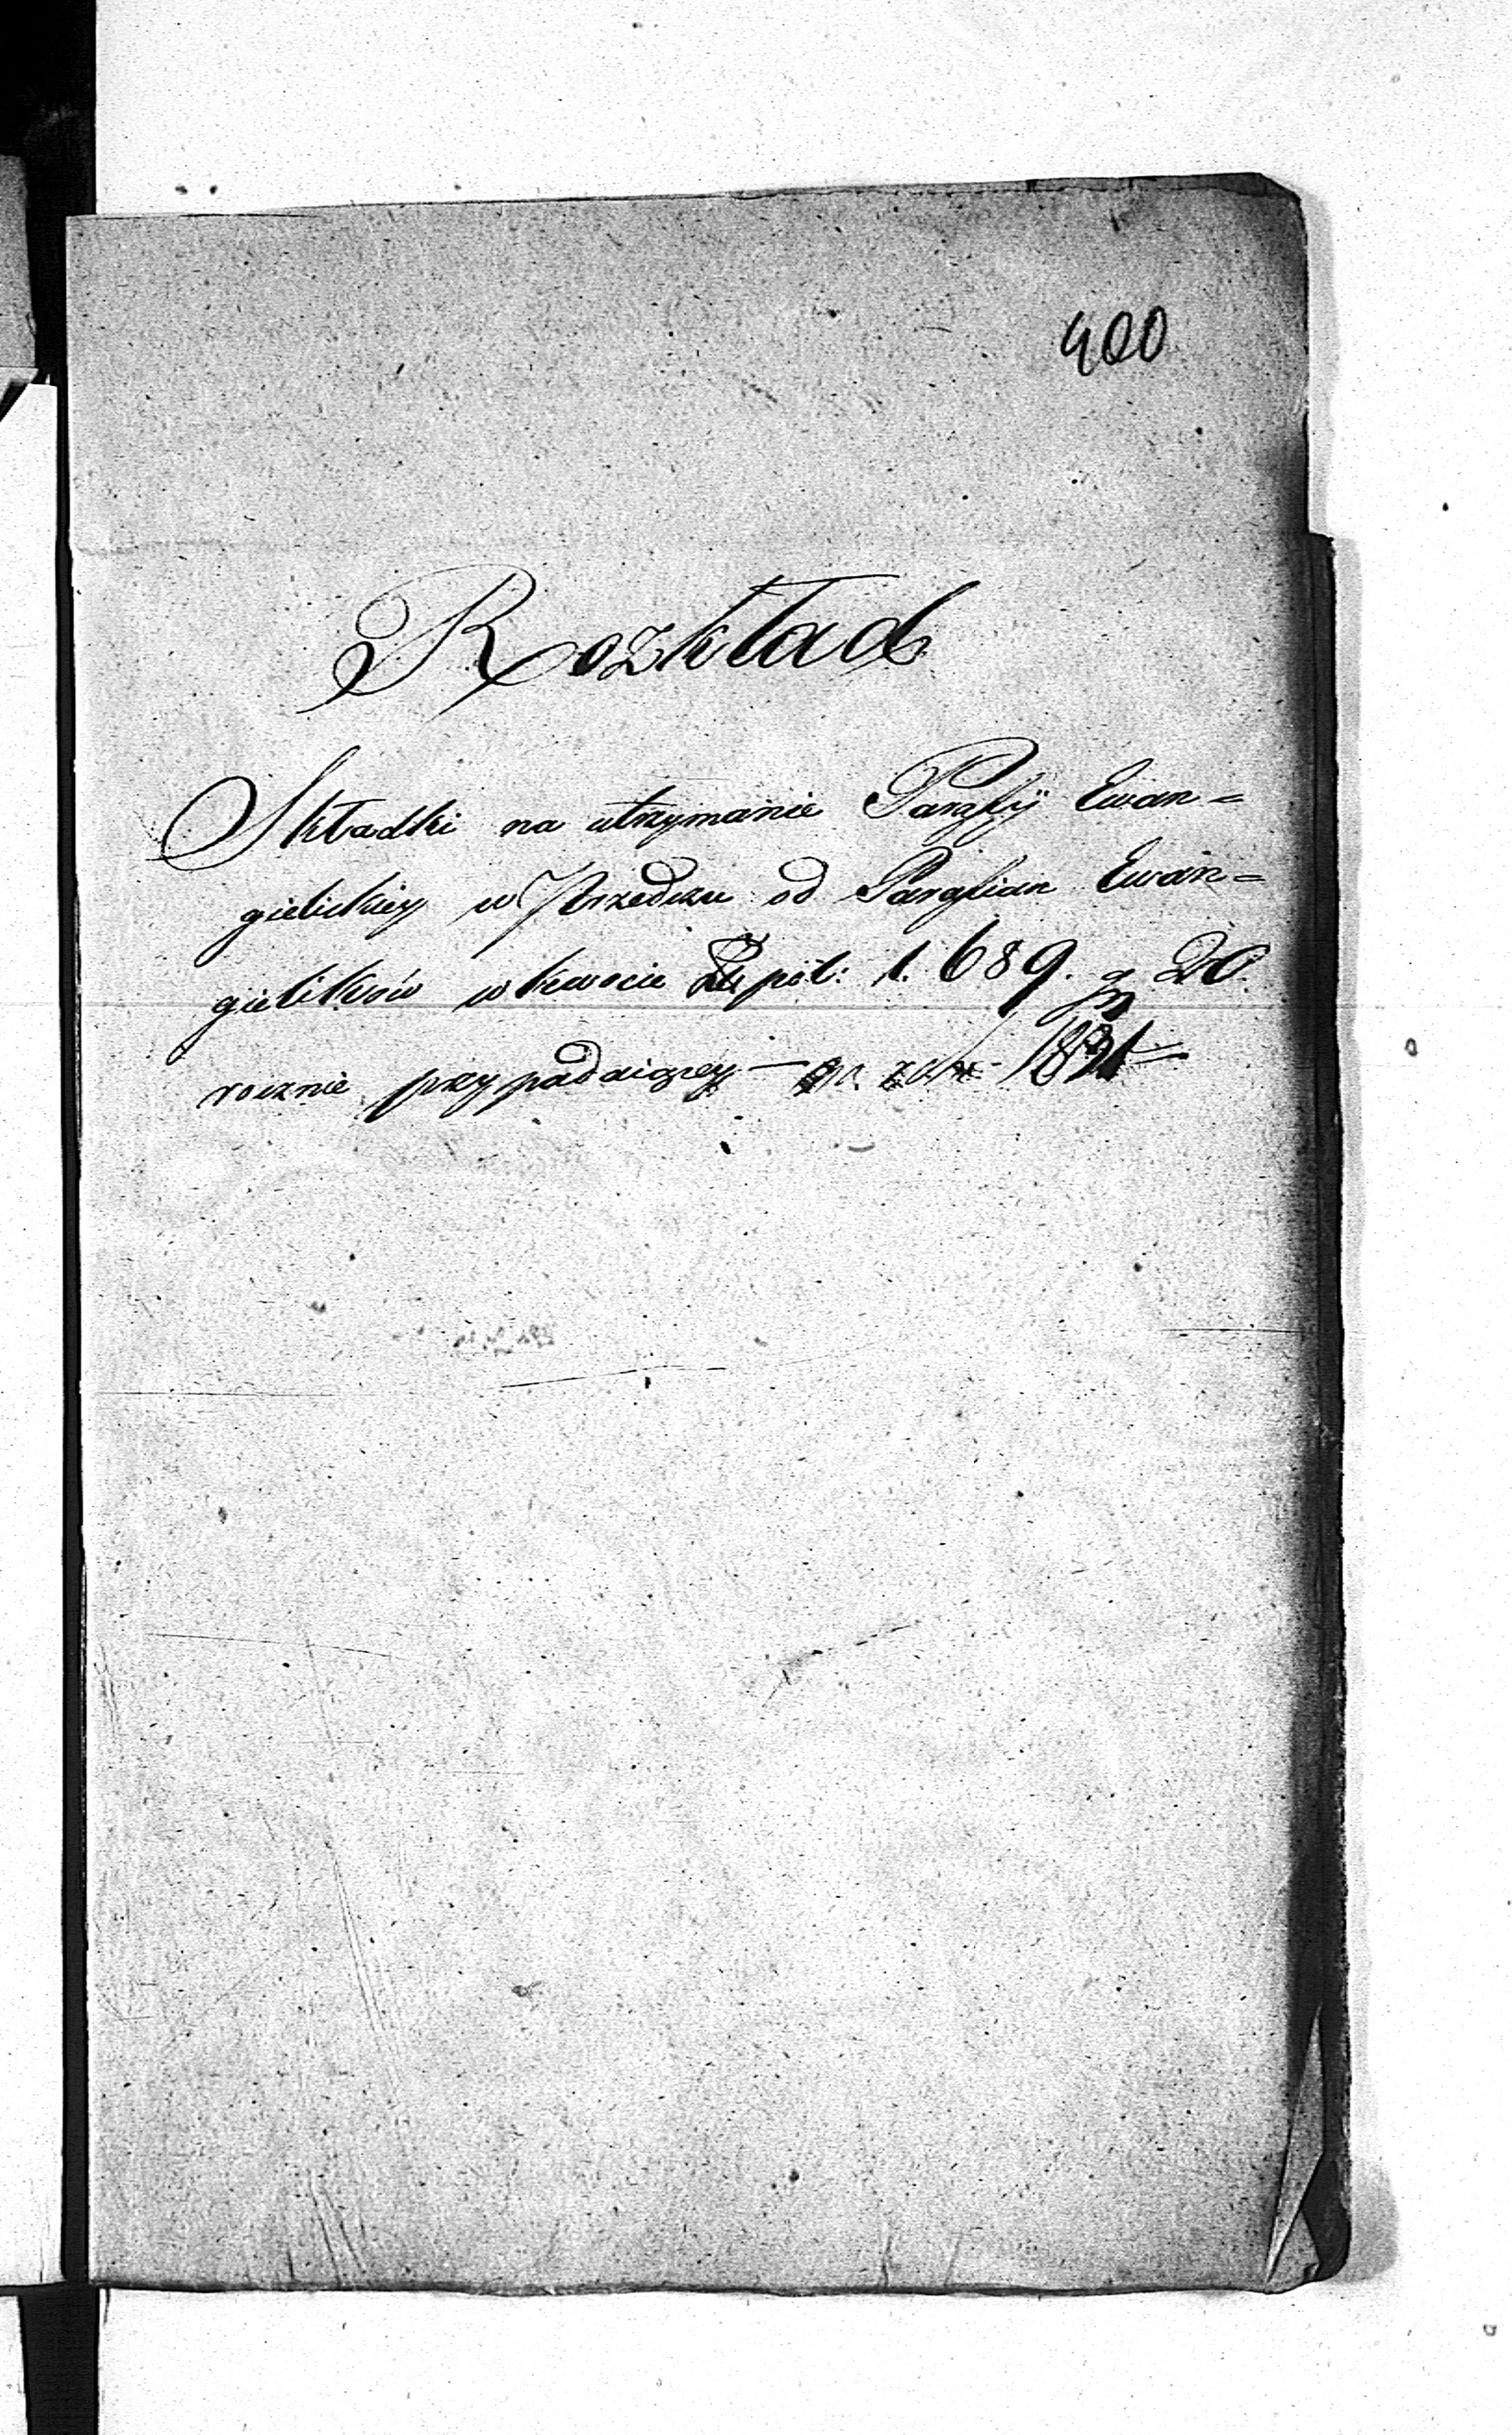 400
Rozkład
Składki na utrzymanie Parafij Ewan=
gielickiey w Przedczu od Parafian Ewan=
gielików w kwocie Złł pol: 1.689. gr 20.
rocznie przypadaiącey — na rok 1831